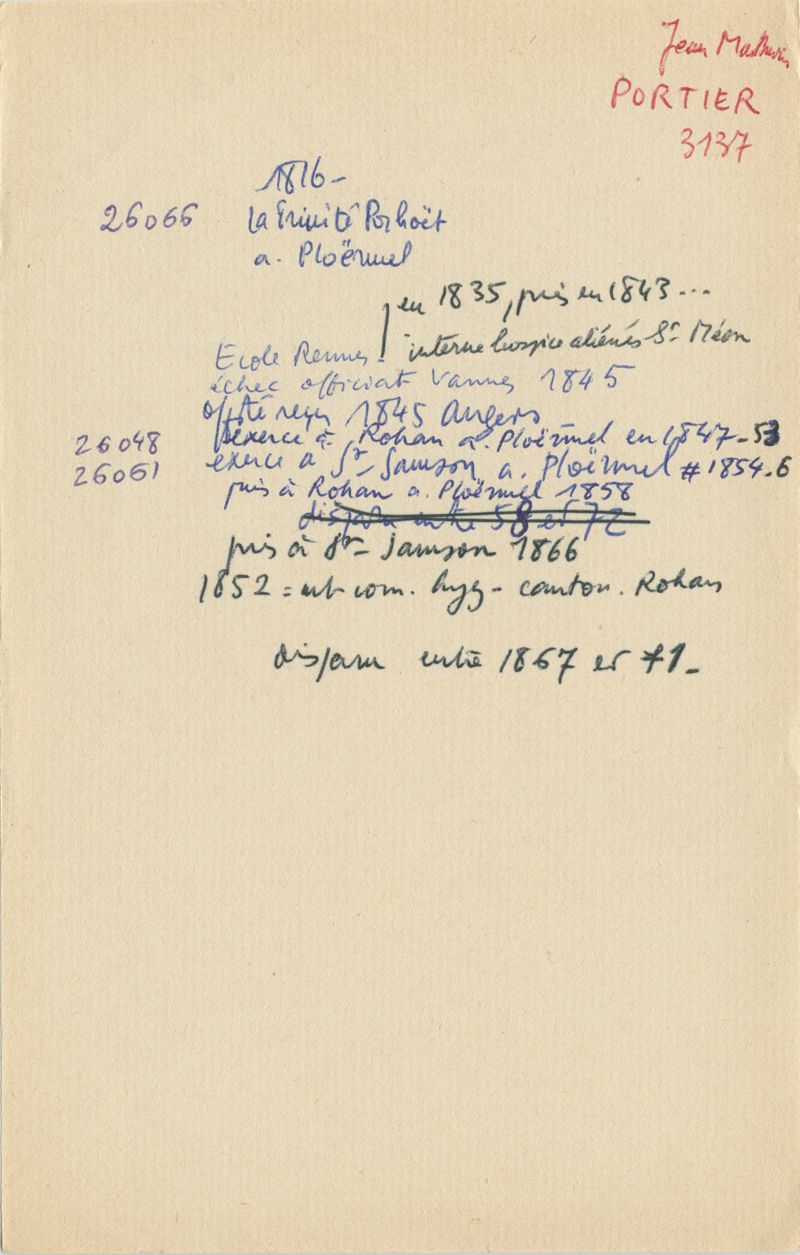 Jean Mathurin
PORTIER
3137
1816-
26066 La Trinité Porhoët
a. Ploërmel
en 1835, puis en 1843...
interne hospice aliénés St Méen
Ecole Rennes -
échec officiat Vannes 1845
offté reçu 1845 Angers
26048 exerce à Rohan a. Ploërmel en 1847-53
26061 exerce à St-Samson a. Ploërmel # 1854.6
puis à Rohan a. Ploërmel 1858
disparu entre 58 et 72
puis à St-Samson 1866
1852 = mb com. hyg- canton. Rohan
disparu entre 1867 et 71-